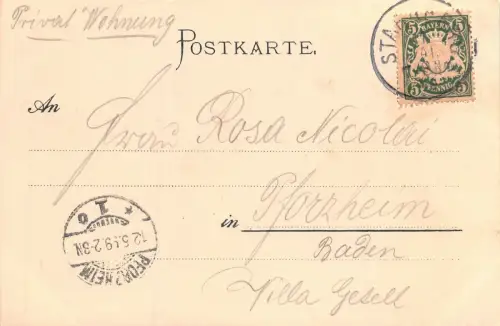 Privat Wohnung
POSTKARTE.
STA
BAYERN
5 5
PFENNIG
An Frau Rosa Nicolai
in Pforzheim
Baden
Villa Gesell
PFORZHEIM
1